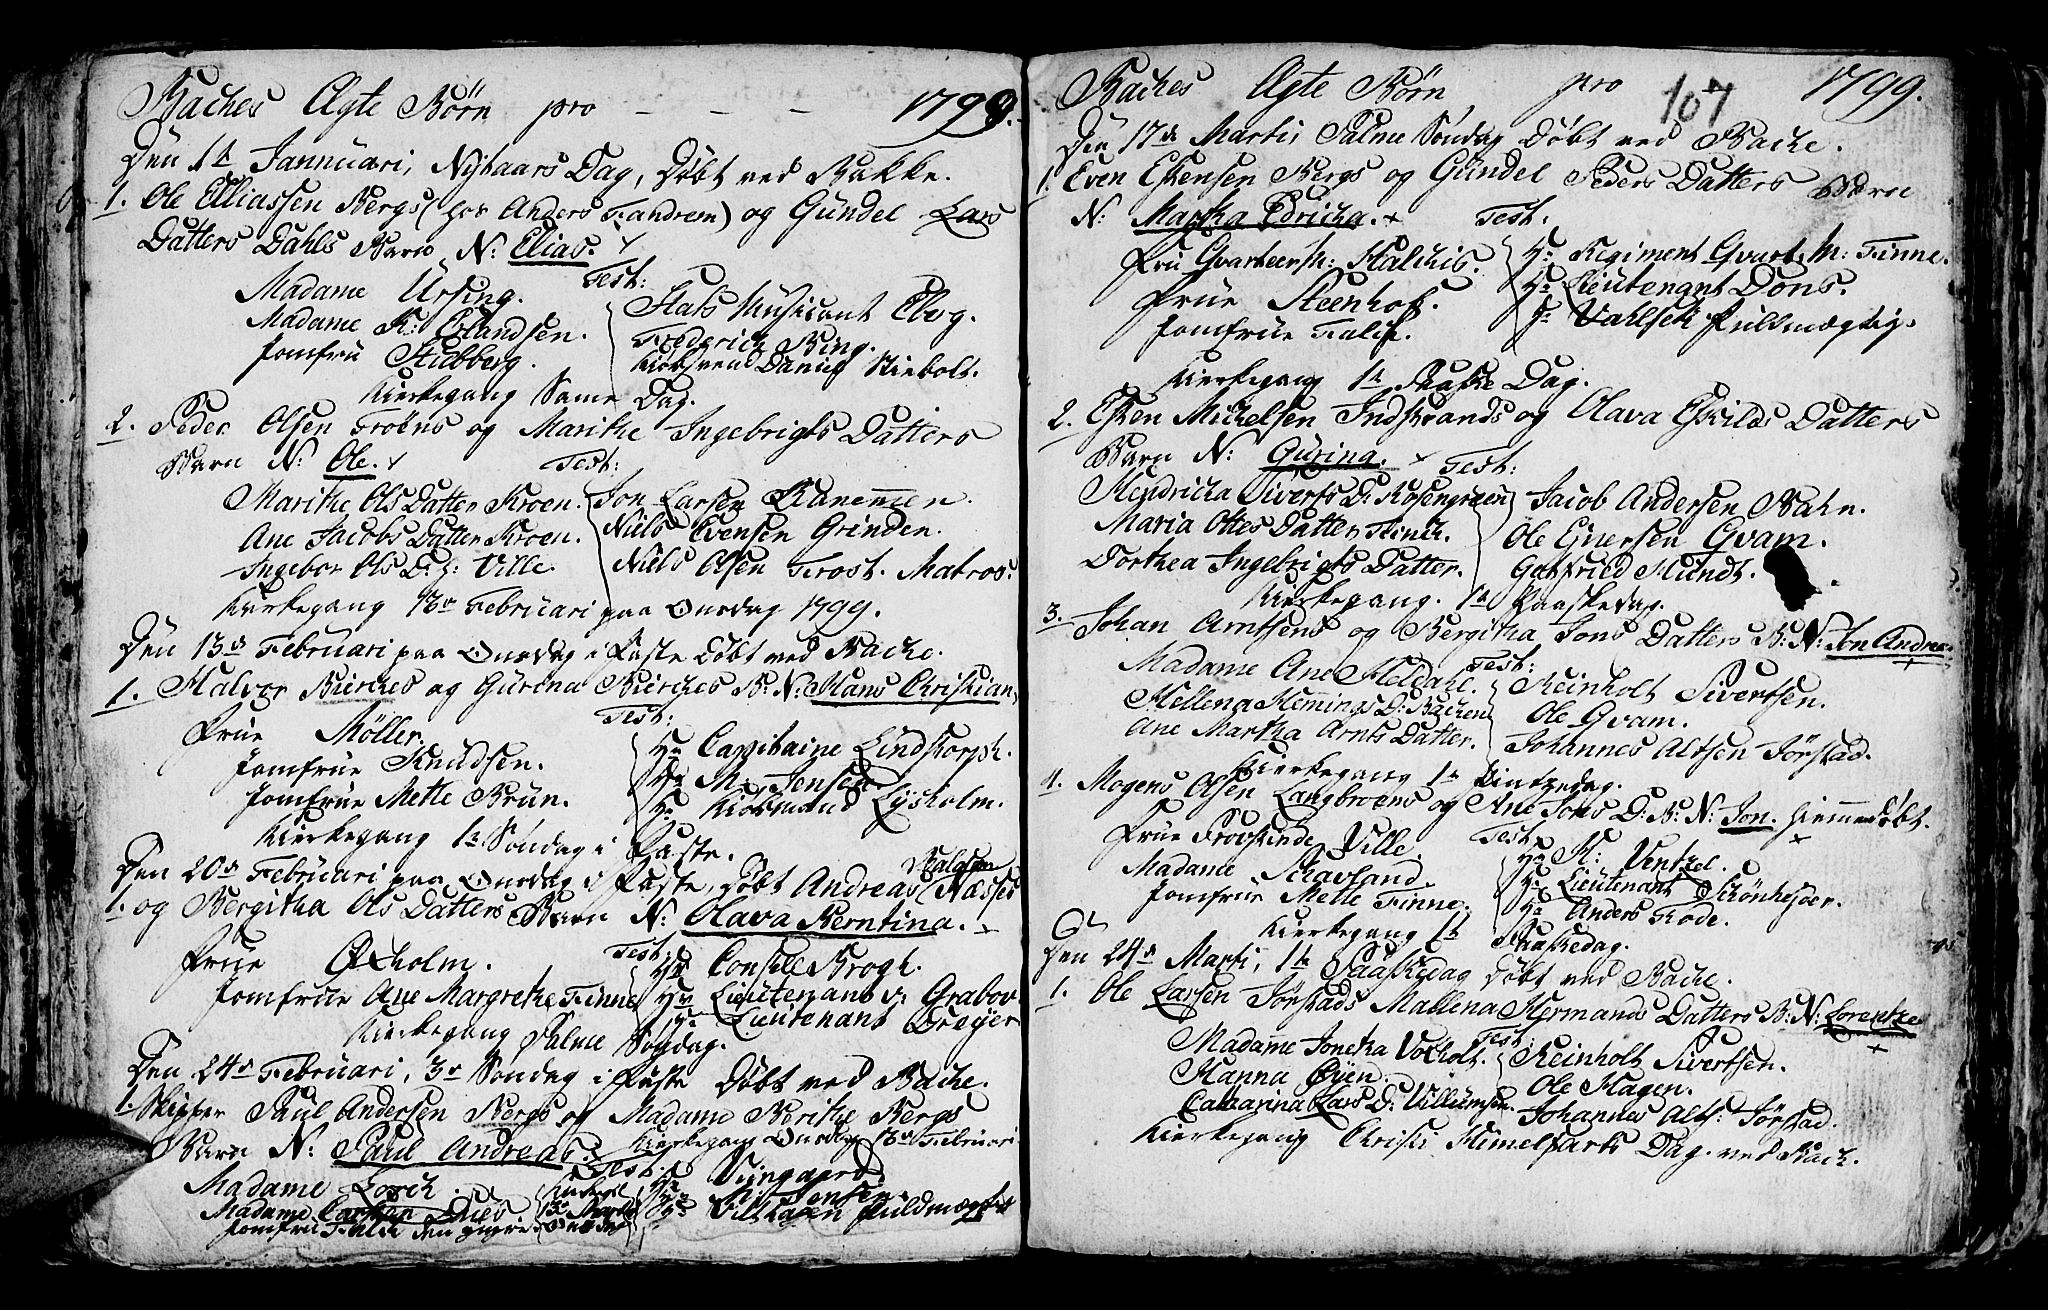 Baches Ægte Børn pro - - - 1799.
Den 1te Jannuari, Nytaars Dag, Døbt ved Bakke.
1. Ole Elliassen Bergs (hos Anders Fandrem) og Gundel Lars
Datters Dahls Barn N: Elias.
Test:
Madame Ursing.
Madame K: Erlandsen.
Jomfru Stibberg.
Stats Musicant Elvog.
Frederich Bing.
Daniel Stiebolt.
Kierkegang Same Dag.
2. Peder Olsen Trøens og Marithe Ingebrigts Datters
Barn N: Ole.
Test:
Marithe Ols Datter Kroen.
Ane Jacobs Datter Kroen.
Ingebor Ols D: Ville.
Jon Larsen Ranemmen.
Niels Evensen Grinden.
Niels Olsen Frost. Matros.
Kierkegang 13de Februari paa Onsdag 1799.
Den 13de Februari paa Onsdag i Faste Døbt ved Bache.
1. Halvor Bierches og Gurina Bierches B: N: Hans Christian
Test:
Frue Møller.
Jomfrue Knudsen.
Jomfrue Mette Brun.
Hr Capitaine Lindstorph.
Hr M: Jensen
Hr Kiøbmand Lysholm.
Kierkegang 1te Søndag i Faste.
Den 20de Februari paa Onsdag i Faste, Døbt Andreas Næsses
1. og Bergitha Ols Datters Barn N: Olava Berntina.
Test:
Frue Oxholm.
Jomfrue Ane Margrethe Finne
Hr Consul Brogh.
Hr Lieutenant v: Grabov
Hr Lieutenant Dreyer
Kierkegang Palme Søndag.
Den 24de Februari, 3de Søndag i Faste Døbt ved Bache.
1. Skipper Paul Andersen Bergs og Madame Berithe Bergs
Barn N: Paul Andreas.
Kierkegang Onsdag 13de Februari
Test:
Madame Lorch
Madame Carsten Dues
Jomfru Falch den yngre
Hr M: Jensen
Hr Vilthagen Fuldmægtig
107
Baches Ægte Børn pro 1799.
Den 17de Marti, Palme Søndag Døbt ved Bache.
1. Even Estensen Bergs og Gundel Peders Datters Barn
N: Martha Edricha.
Test:
Fru Qvarteerm: Halchis.
Frue Steenhof.
Jomfrue Falch.
Hr Regiment Qvart: M: Finne.
Hr Lieutenant Dons.
Hr Vahlsek Fuldmægtig.
Kierkegang 1te Paaske Dag.
2. Esten Michelsen Indstrands og Olava Eskilds Datters
Barn N: Gurina.
Test:
Hendricha Siverts D: Rosengreen
Maria Ottes Datter Finch.
Dorthea Ingebrigts Datter.
Jacob Andersen Bahn.
Ole Enersen Qvam.
Gotfried Mundt.
Kierkegang. 1te Paaskedag.
3. Johan Arntsens og Bergitha Jons Datters B: N: Jon Andreas
Test:
Madame Ane Meldahl.
Hellena Hemmings D: Bachen
Ane Martha Arnts Datter.
Reinholt Sivertsen.
Ole Qvam.
Johannes Altsen Jørstad.
Kierkegang 1te Pintzedag.
4. Mogens Olsen Langbroens og Ane Jons D: B: N: Jon. hiemmedøbt.
Test:
Frue Provstinde Ville.
Madame Schavland.
Jomfrue Mette Finne.
Hr K: Ventzel
Hr Lieutenant Schønheyder.
Hr Anders Rode.
Kierkegang 1te Paaskedag.
Den 24de Marti, 1te Paaskedag Døbt ved Bache.
1. Ole Larsen Jørstads Mallena Hermands Datters B: N: Lorentze
Test:
Madame Joneha Vocholt.
Hanna Øyen.
Catharina Lars D: Villumsen.
Reinholt Sivertsen.
Ole Hagen.
Johannes Alts: Jørstad.
Kierkegang Christi Himelfarts Dag. ved Bach.